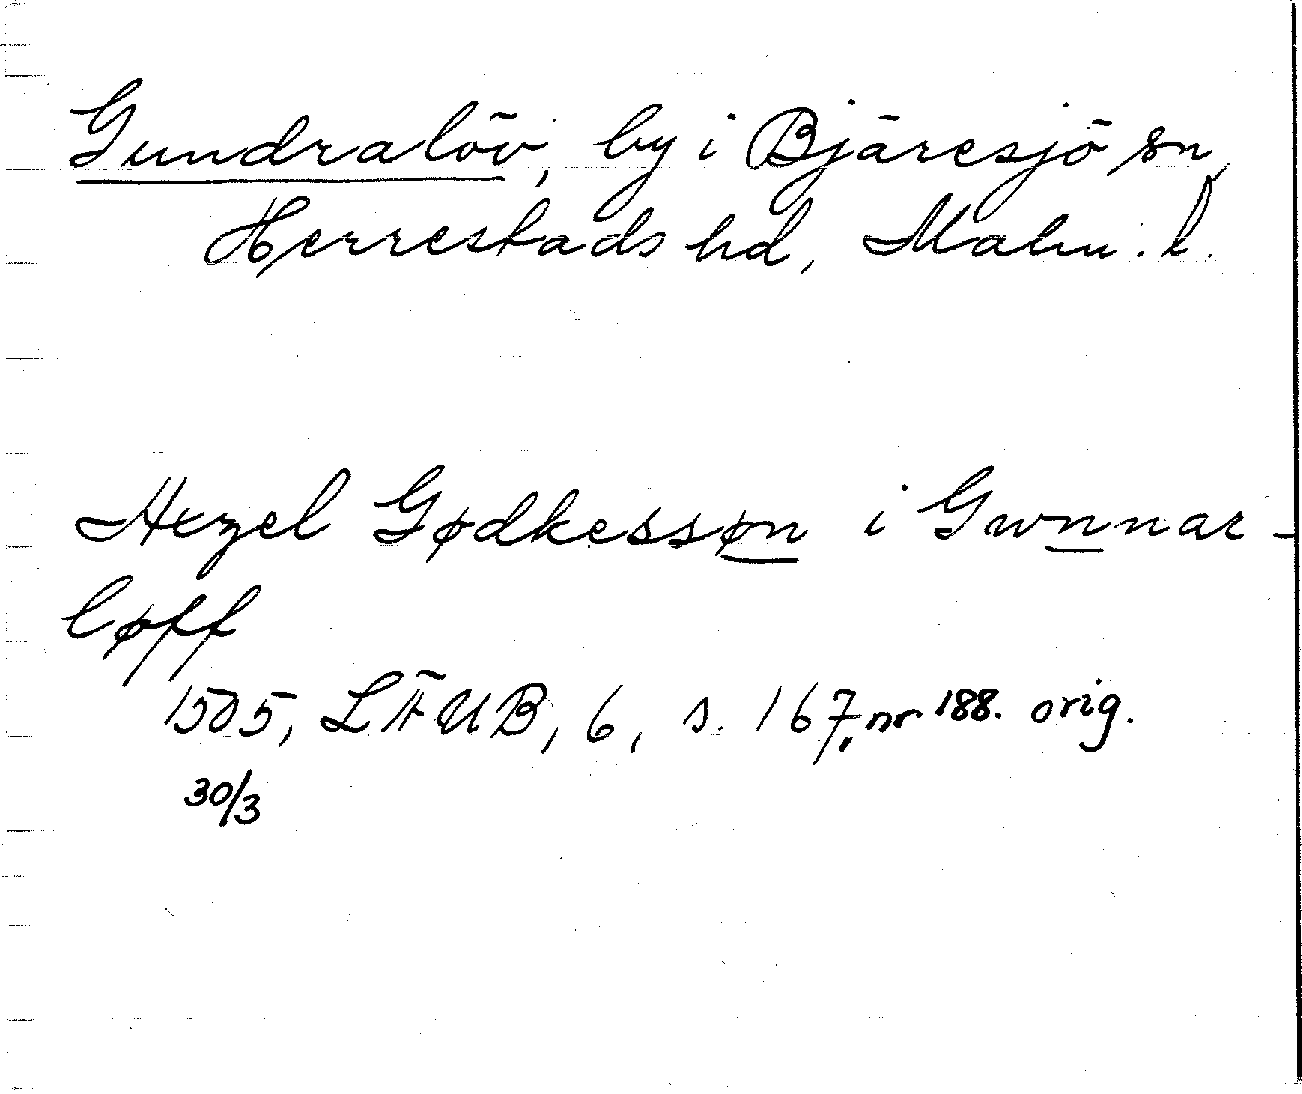 Gundralöv, by i Bjäresjö sn,
Herrestads hd, Malm. l.
Axzel Gødkessøn i Gwnnar-
løff
1505, LÄUB, 6, s. 167, nr 188. orig.
30/3